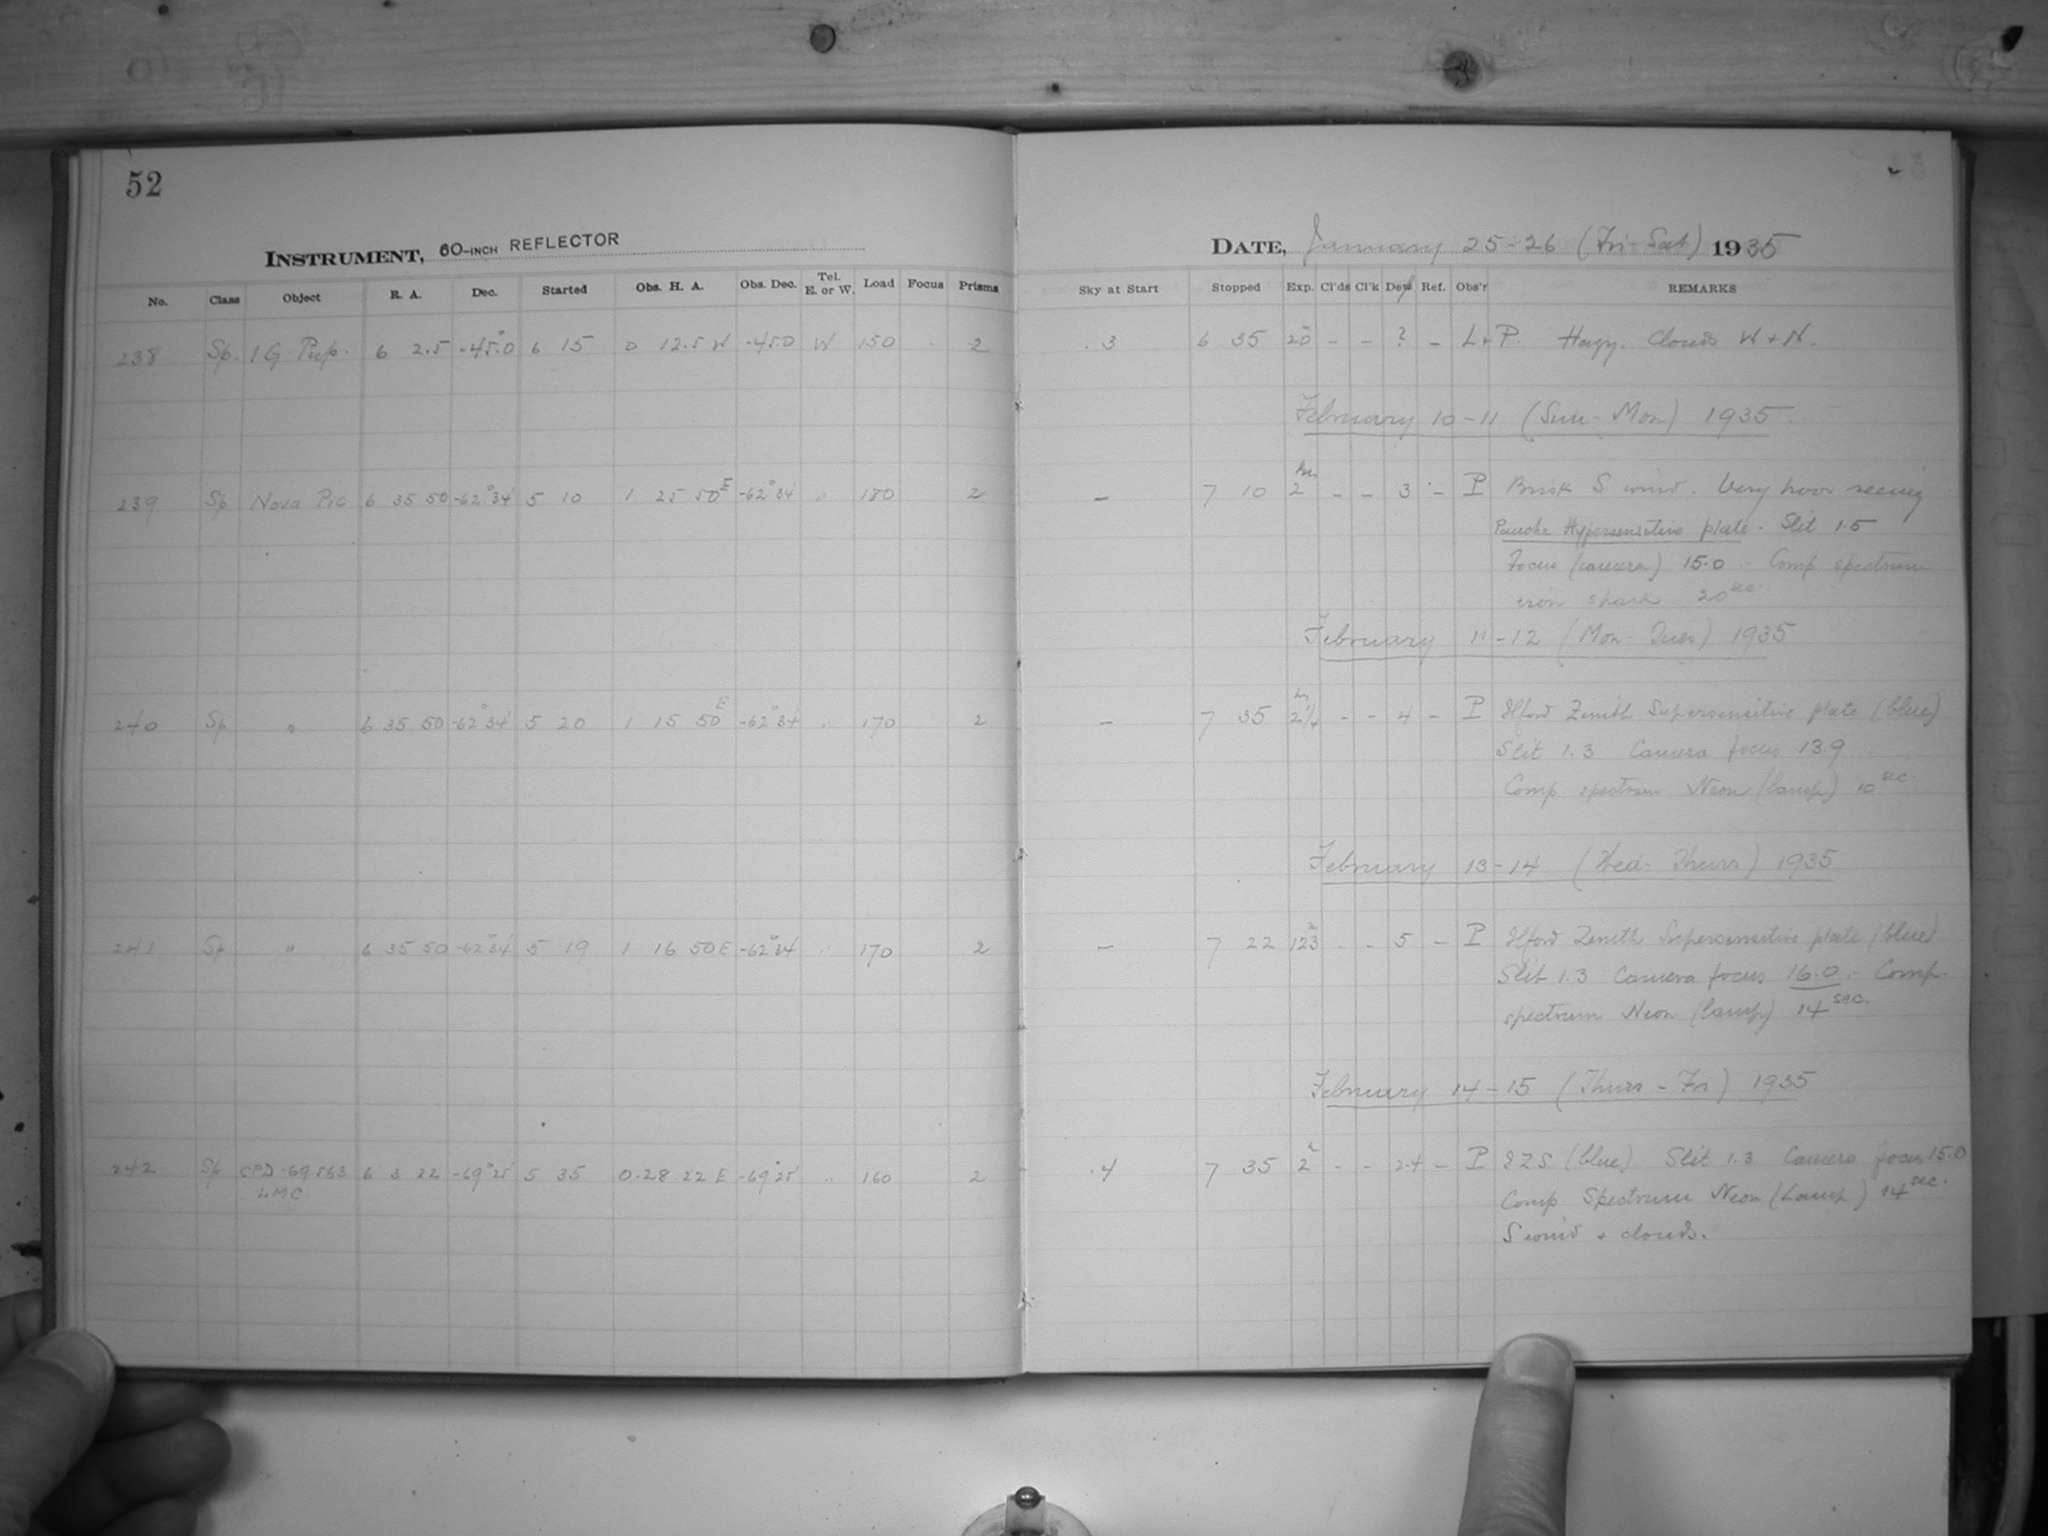 52
INSTRUMENT, 60-INCH REFLECTOR
DATE, January 25-26 (Fri-Sat) 1935
No. Class Object R. A. Dec. Started Obs. H. A. Obs. Dec. Tel. E. or W. Load Focus Prisms Sky at Start Stopped Exp. Cl'ds Cl'k Dew Ref. Obs'r REMARKS
238 Sp. 1 G. Pup. 6 2.5 -45.0 6 15 0 12.5 W -45.0 W 150 - 2 .3 6 35 20 - - ? - L+P. Hazy. Clouds W + N.
February 10-11 (Sun-Mon) 1935
239 Sp Nova Pic 6 35 50 -62°34' 5 10 1 25 50 E -62°34' " 180 2 - 7 10 2 hrs - - 3 - P Brisk S wind. Very poor seeing
Hypersensitive plate. Slit 1.5
Focus (camera) 15.0 - Comp spectrum
iron spark 20 sec.
February 11-12 (Mon-Tues) 1935
240 Sp " 6 35 50 -62°34' 5 20 1 15 50 E -62°34' " 170 2 - 7 35 2¼ hrs - - 4 - P Ilford Zenith Supersensitive plate (blue)
Slit 1.3 Camera focus 13.9
Comp. spectrum Neon (lamp) 10 sec.
February 13-14 (Wed-Thurs) 1935
241 Sp " 6 35 50 -62°34' 5 19 1 16 50 E -62°34' " 170 2 - 7 22 123 m - - 5 - P Ilford Zenith Supersensitive plate (blue)
Slit 1.3 Camera focus 16.0 - Comp.
spectrum Neon (lamp) 14 sec.
February 14-15 (Thurs-Fri) 1935
242 Sp CPD -69.563 6 3 22 -69°25' 5 35 0.28 22 E -69°25' " 160 2 .4 7 35 2 h - - 2.4 - P I.Z.S. (blue) Slit 1.3 Camera focus 15.0
LMC
Comp Spectrum Neon (Lamp) 14 sec.
S wind + clouds.